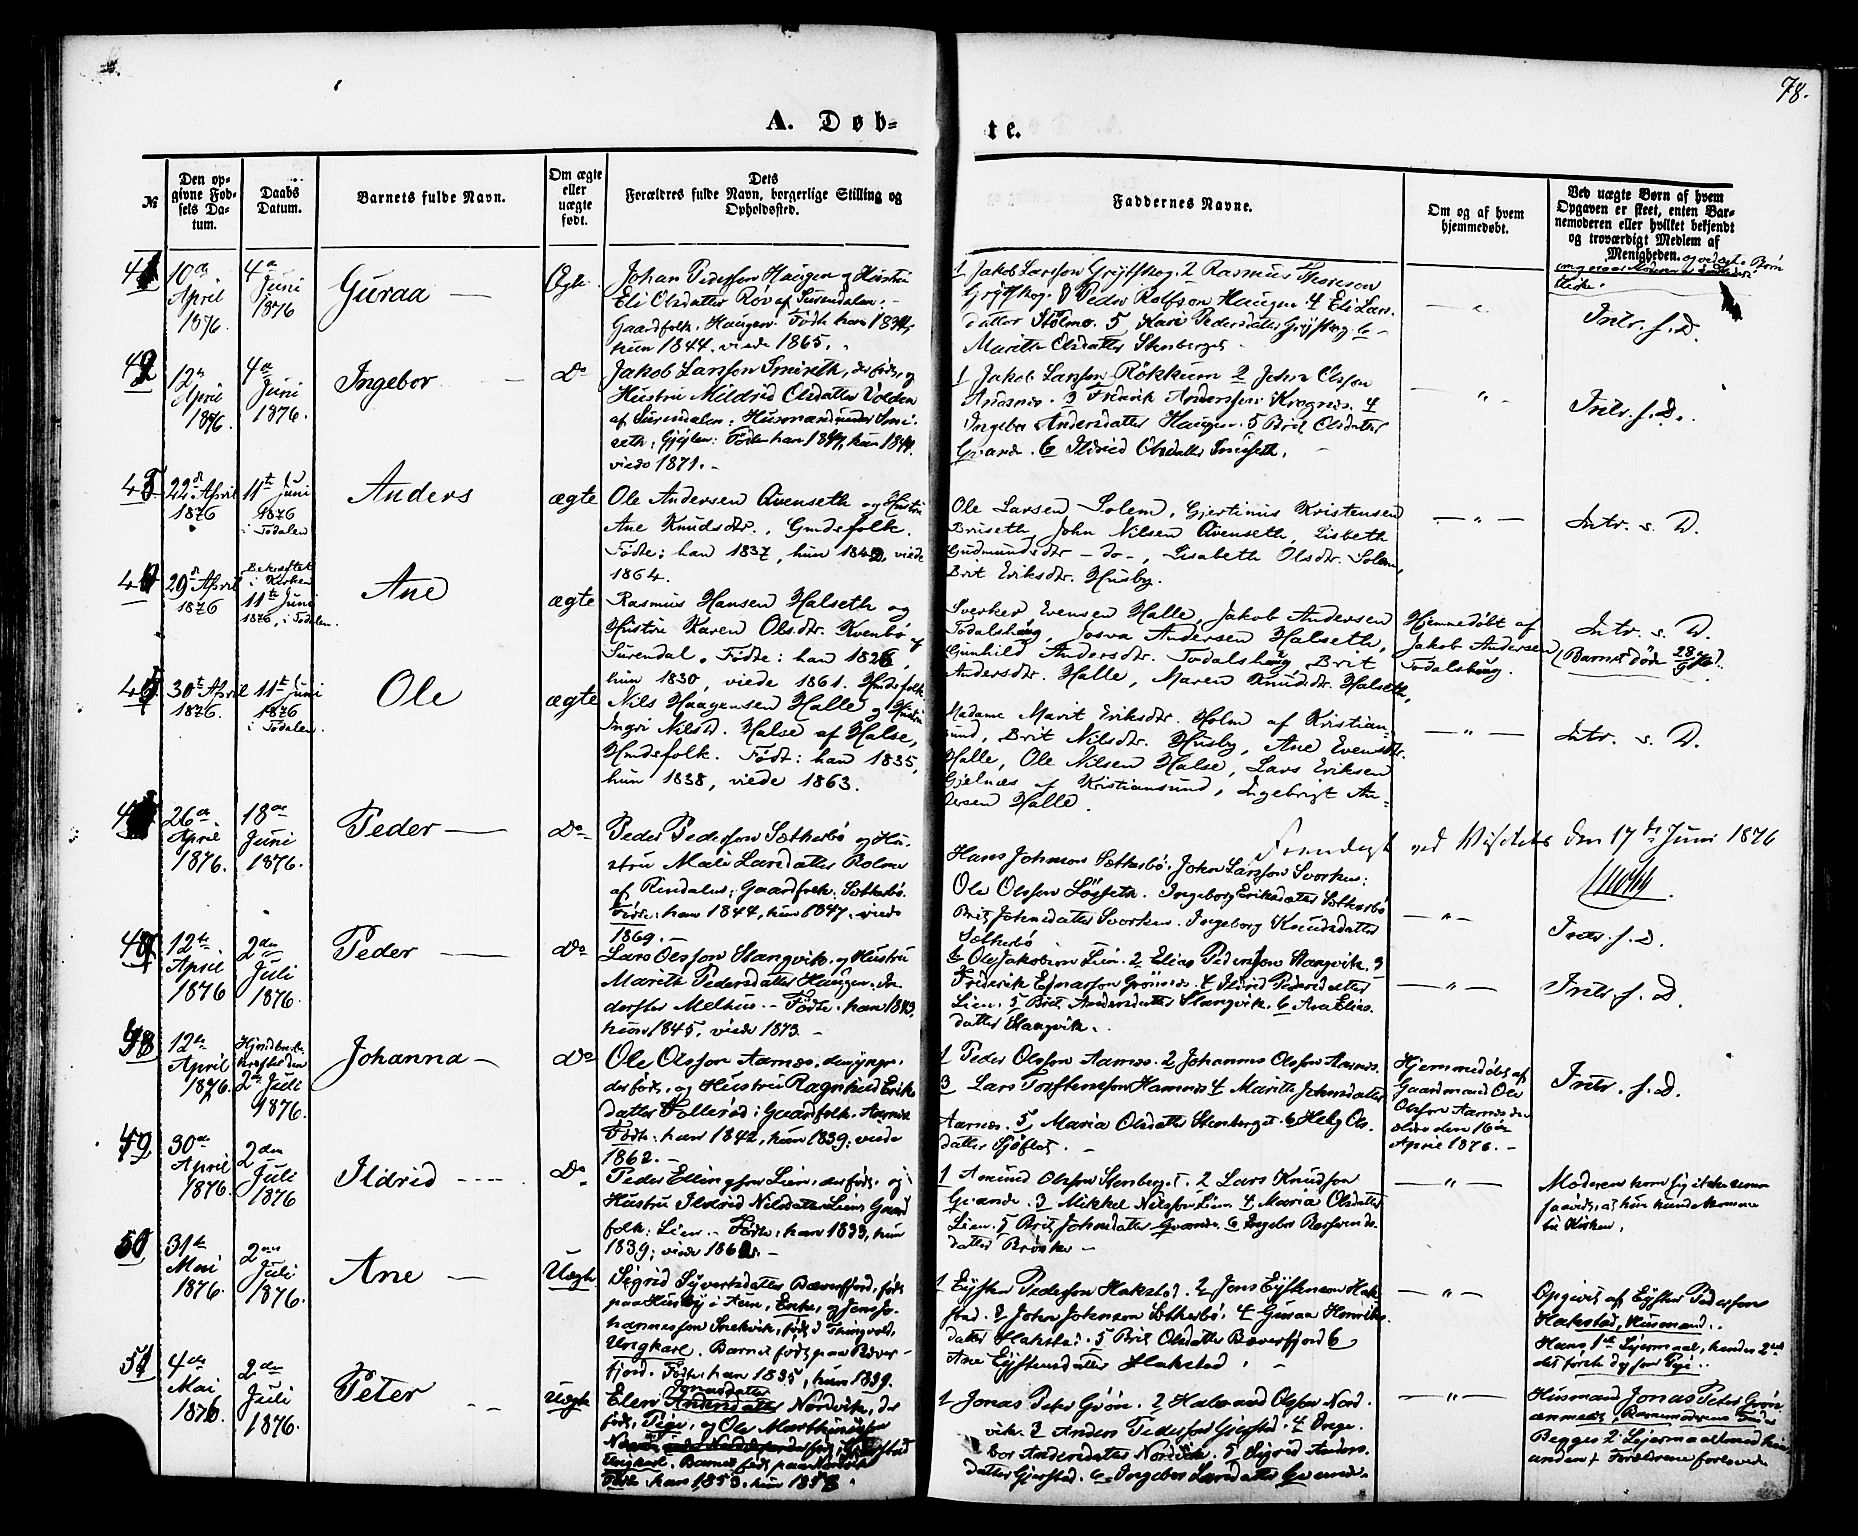 78.
A. Døb-
te.
№
Den op-
givne Fød-
sels Da-
tum.
Daabs
Datum.
Barnets fulde Navn.
Om ægte
eller
uægte
født.
Dets
Forældres fulde Navn, borgerlige Stilling og
Opholdssted.
Faddernes Navne.
Om og af hvem
hjemmedøbt.
Ved uægte Børn af hvem
Opgaven er skeet, enten Bar-
nemoderen eller hvilket bekjendt
og troværdigt Medlem af
Menigheden.
10de April 1876.
4de Juni 1876
Guraa
Ægte
Johan Pedersson Haugen og Hustru
Eli Olsdatter Røv af Surendalen;
Gaardfolk. Haugen. Født: han 1834,
hun 1844. viede 1865.
1 Jakob Larsson Grytskog. 2 Rasmus
Grytskog. 3 Peder Rolfson Haugen 4 Eli Lars-
datter Stølmo. 5 Kari Pedersdatter Grytskog. 6
Marith Olsdatter Stenberget.
Intr. s. D.
12te April 1876.
4de Juni 1876.
Ingebor
Do
Jakob Larsson Smiseth, dersteds, og
Hustru Mildrid Olsdatter Volden
af Surendalen; Husmand under Smi-
seth; Født: han 1847, hun 1844.
viede 1871.
1 Jakob Larsson Røkkum 2 John Olsson
Aasnes. 3 Fredrik Andersson Kragnes. 4
Ingebor Andersdatter Haugen. 5 Brit Olsdatter
Qvande. 6 Ildrid Olsdatter Smiseth.
Intr. s. D.
22de April 1876
11te Juni 1876 i Todalen
Anders
ægte
Ole Andersen Qvenseth og Hustru
Ane Knudsdtr., Gmdsfolk.
Fødte: han 1837, hun 1842, viede
1864.
Ole Larsen Solem, Gjertinus Kristensen
Bruseth, John Nilsen Qvenseth, Lisbeth
Gudmundsdtr - do -, Lisabeth Olsdtr. Solem,
Brit Eriksdtr. Husby.
Intr. s. D.
29de April 1876
Bekræftet i Kirken 11te Juni 1876, i Todalen.
Ane
ægte
Rasmus Hansen Halseth og
Hustru Karen Olsdtr. Kvenbø af
Surendal. Fødte: han 1826,
hun 1830, viede 1861. Hmdsfolk
Sverker Evensen Halle, Jakob Andersen
Todalshaug, Josva Andersen Halseth,
Gunhild Andersdtr. Todalshaug, Brit
Andersdtr. Halle, Maren Knudsdtr. Halseth,
Hjemmedøbt af
Jakob Andersen
Todalshaug.
Intr. s. D.
30te April 1876.
11te Juni 1876 i Todalen.
Ole
ægte
Nils Haagensen Halle og Hustru
Ingri Nilsd. Halse af Halse,
Hmdsfolk. Født: han 1835,
hun 1838, viede 1863.
Madame Marit Eriksdtr. Holm af Kristian-
sund, Brit Nilsdtr. Husby, Ane Evensdtr.
Halle, Ole Nilsen Halse, Lars Eriksen
Gjelnæs af Kristiansund, Ingebrigt An-
dersen Halle.
Intr. s. D.
26de April 1876.
18de Juni 1876.
Peder
Do
Peder Pedersson Sætherbø og Hu-
stru Mali Larsdatter Bolme
af Rindalen; Gaardfolk. Sætherbø.
Født: han 1844, hun 1847, viede
1869.
Fremlagt ved Visitats den 17de Juni 1876
Hans Johnson Sætherbø. John Larsson Svorken:
Ole Olsson Løfseth. Ingeborg Eriksdatter Sætherbø
Brit Johnsdatter Svorken. Ingeborg Knudsdatter
Sætherbø
Intr. s. D.
12te April 1876
2den Juli 1876.
Peder
Do
Lars Olsson Stangvik og Hustru
Marith Pedersdatter Haugen,
Melhus. Født: han 1843,
hun 1845, viede 1873.
1 Ole Jakobson Lien. 2 Elias Pedersson Stangvik. 3
Frederik Einarsson Grønnes. 4 Ildrid Pedersdatter
Lien. 5 Brit Andersdatter Stangvik. 6 Ana Elias-
datter Stangvik.
Intr. s. D.
48
12te April 1876.
2den Juli 1876.
Johanna
Do
Ole Olsson Aarnes, den yngre,
dersteds, og Hustru Ragnhild Eriks-
datter; Gaardfolk. Aarnes
Født: han 1842, hun 1839; viede
1862.
1 Peder Olsson Aarnes. 2 Johannes Olsson Aarnes.
3 Lars Torstensson Hamnes 4 Marith Johnsdatter
Aarnes. 5 Maria Olsdatter Stenberget. 6 Helg Ols-
datter Sjøflot.
Hjemmedøbt af
Gaardmand Ole
Olsson Aarnes den
ældre den 16de
April 1876.
Intr. s. D.
49
30te April 1876.
2den Juli 1876
Ildrid
Do
Peder Ellingson Lien, dersteds, og
Hustru Ildrid Nilsdatter Lien; Gaard-
folk: Lien. Født: han 1833, hun
1839; viede
1 Amund Olsson Stenberget. 2 Lars Knudson
Qvande. 3 Mikkel Nilsson Lien. 4 Maria Olsdatter
Lien. 5 Brit Johnsdatter Qvande. 6 Ingebor
datter Brøske
Moderen kom sig ikke
saavidt, at hun kunde komme
til Kirken.
50
31te Mai 1876.
2den Juli 1876.
Ane
Uægte
Sigrid Syvertsdatter Bæverfjord, født
paa Husby i Aure, Enke, og Jens Jo-
hannesson Snekvik, født i Thingvold,
Ungkarl. Barnet født paa Bæver-
fjord. Født: han 1835, hun 1839.
1 Eysten Pedersson Hakstad. 2 Jens Eystenson Hak-
stad. 3 John Johnson Sætherbø. 4 Guraa Henriks-
datter Hakstad. 5 Brit Olsdatter Bæverfjord 6
Ane Eystensdatter Hakstad.
Opgivet af Eysten Pedersson
Hakstad, Husmand.
Hans 1ste Leiermaal, hendes 2det
det første
51
4de Mai 1876.
2den Juli 1876.
Peter
Uægte
Elen Jonasdatter Nordvik, der
født, Pige, og Ole
Ungkarl. Barnet født paa Nordvik
Født: han 1853. hun 1858.
1 Jonas Peter Grøn. 2 Halvard Olsson Nord-
vik. 3 Anders Pedersson Gjerstad. 4 Inge-
bor Andersdatter Nordvik. 5 Sigrid Anders-
datter Gjerstad. 6 Ingebor Larsdatter Qvande.
Husmand Jonas Peter Grøn
anmeldt, Barnemoderens Fader
Begges 2 Leiermaal med hin-
anden